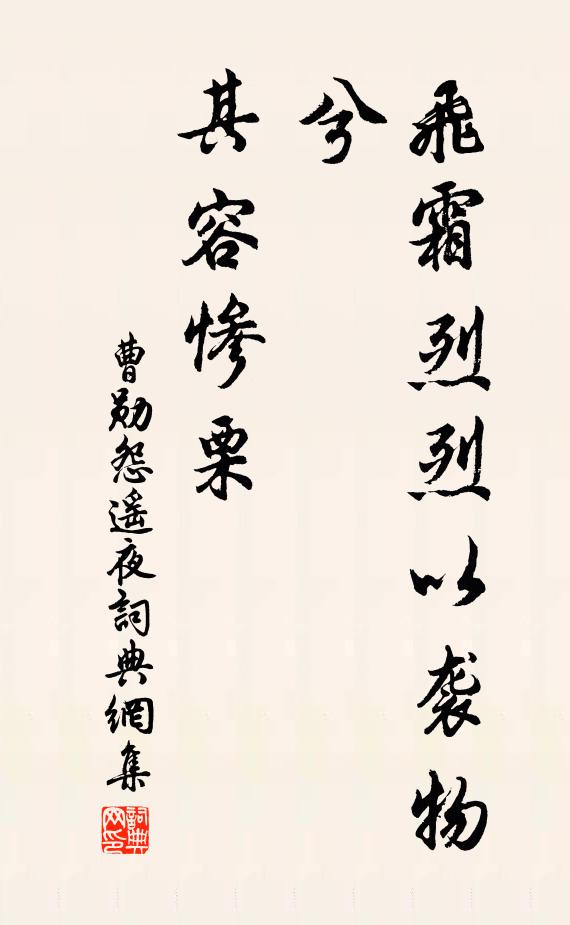 飛霜烈烈以袭物
兮
其容惨栗
曹勋怨遥夜詞典網集
詞典网印